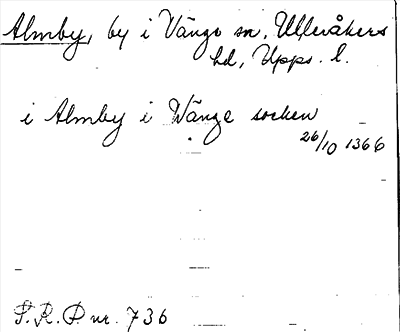 Almby, by i Vänge sn, Ulleråkers
hd, Upps. l.
i Almby i Wänge socken
26/10 1366
S. R. P. nr. 736